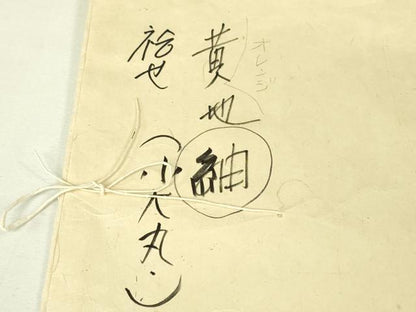 オレンジ
黄地 紬
袷せ (小大丸.)